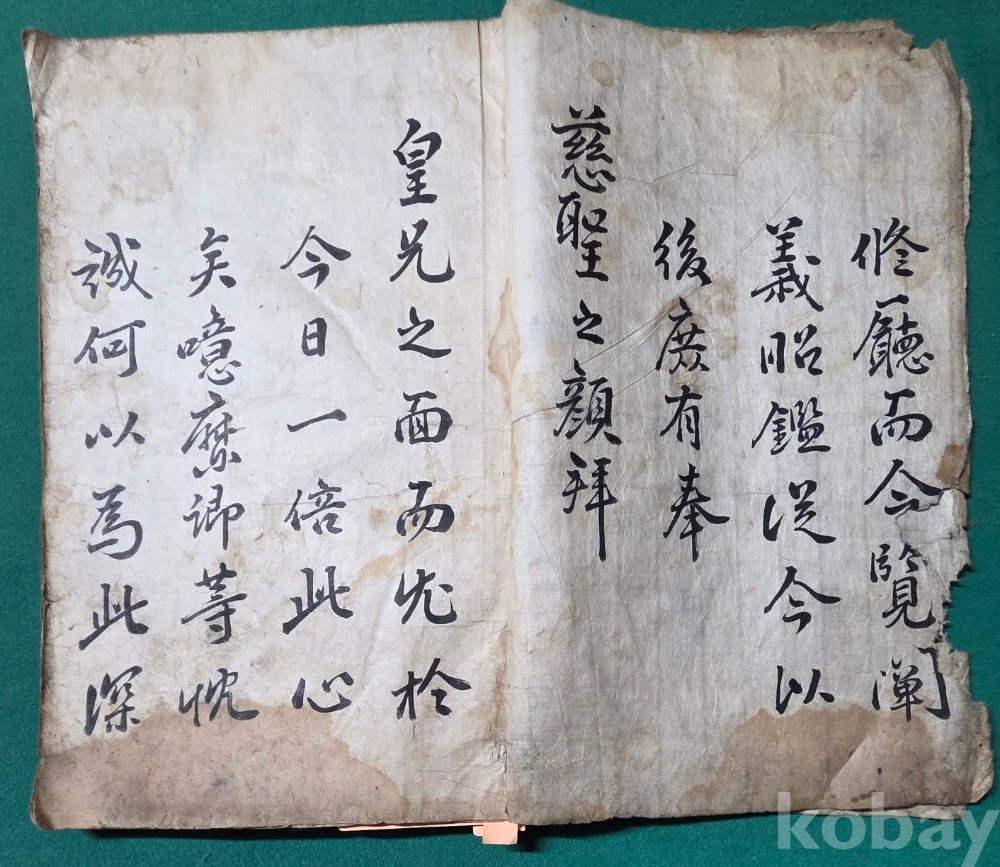 修廳而今覽闡
義昭鑑從今以
後庶有奉
慈聖之顔拜
皇兄之面而尤於
今日一倍此心
矣噫縻卿等忱
誠何以為此深
kobay